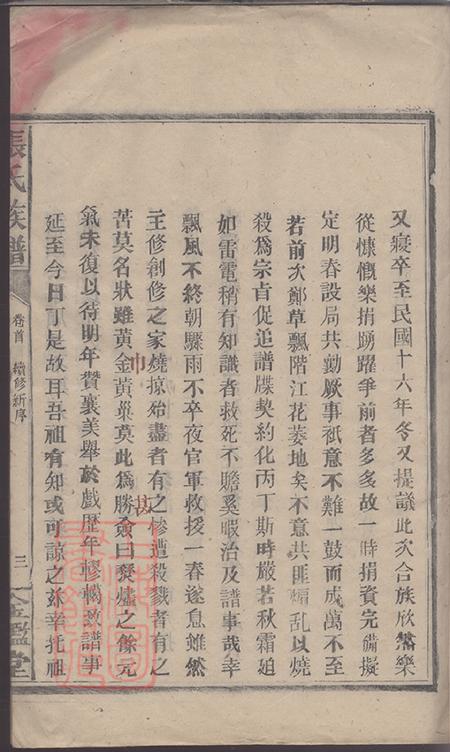 又寢卒至民國十六年冬又提議此次合族欣然樂
從慷慨樂捐踴躍爭前者多多故一時捐資完備擬
定明春設局共勷厥事祇意不難一鼓而成萬不至
若前次鄭草飄階江花萎地矣不意共匪倡亂以燒
殺為宗旨促追譜牒契約化丙丁斯時嚴若秋霜廹
如雷電稍有知識者救死不贍奚暇治及譜事哉幸
飄風不終朝驟雨不卒夜官軍救援一春遂息雖然
主修創修之家燒掠殆盡者有之慘遭殺戮者有之
苦莫名狀雖黃金黃巢莫此為勝僉曰焚燼之餘元
氣未復以待明年贊襄美舉於戲歷年轇轕致譜事
延至今日丁是故耳吾祖有知或可諒之茲幸托祖
張氏族譜
卷首 續修新序
三
金鑑堂
巾